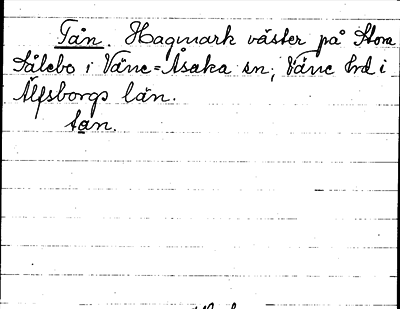 Tån. Hagmark väster på Stora
Sålebo i Väne=Åsaka sn, Väne hd i
Älfsborgs län.
tan.